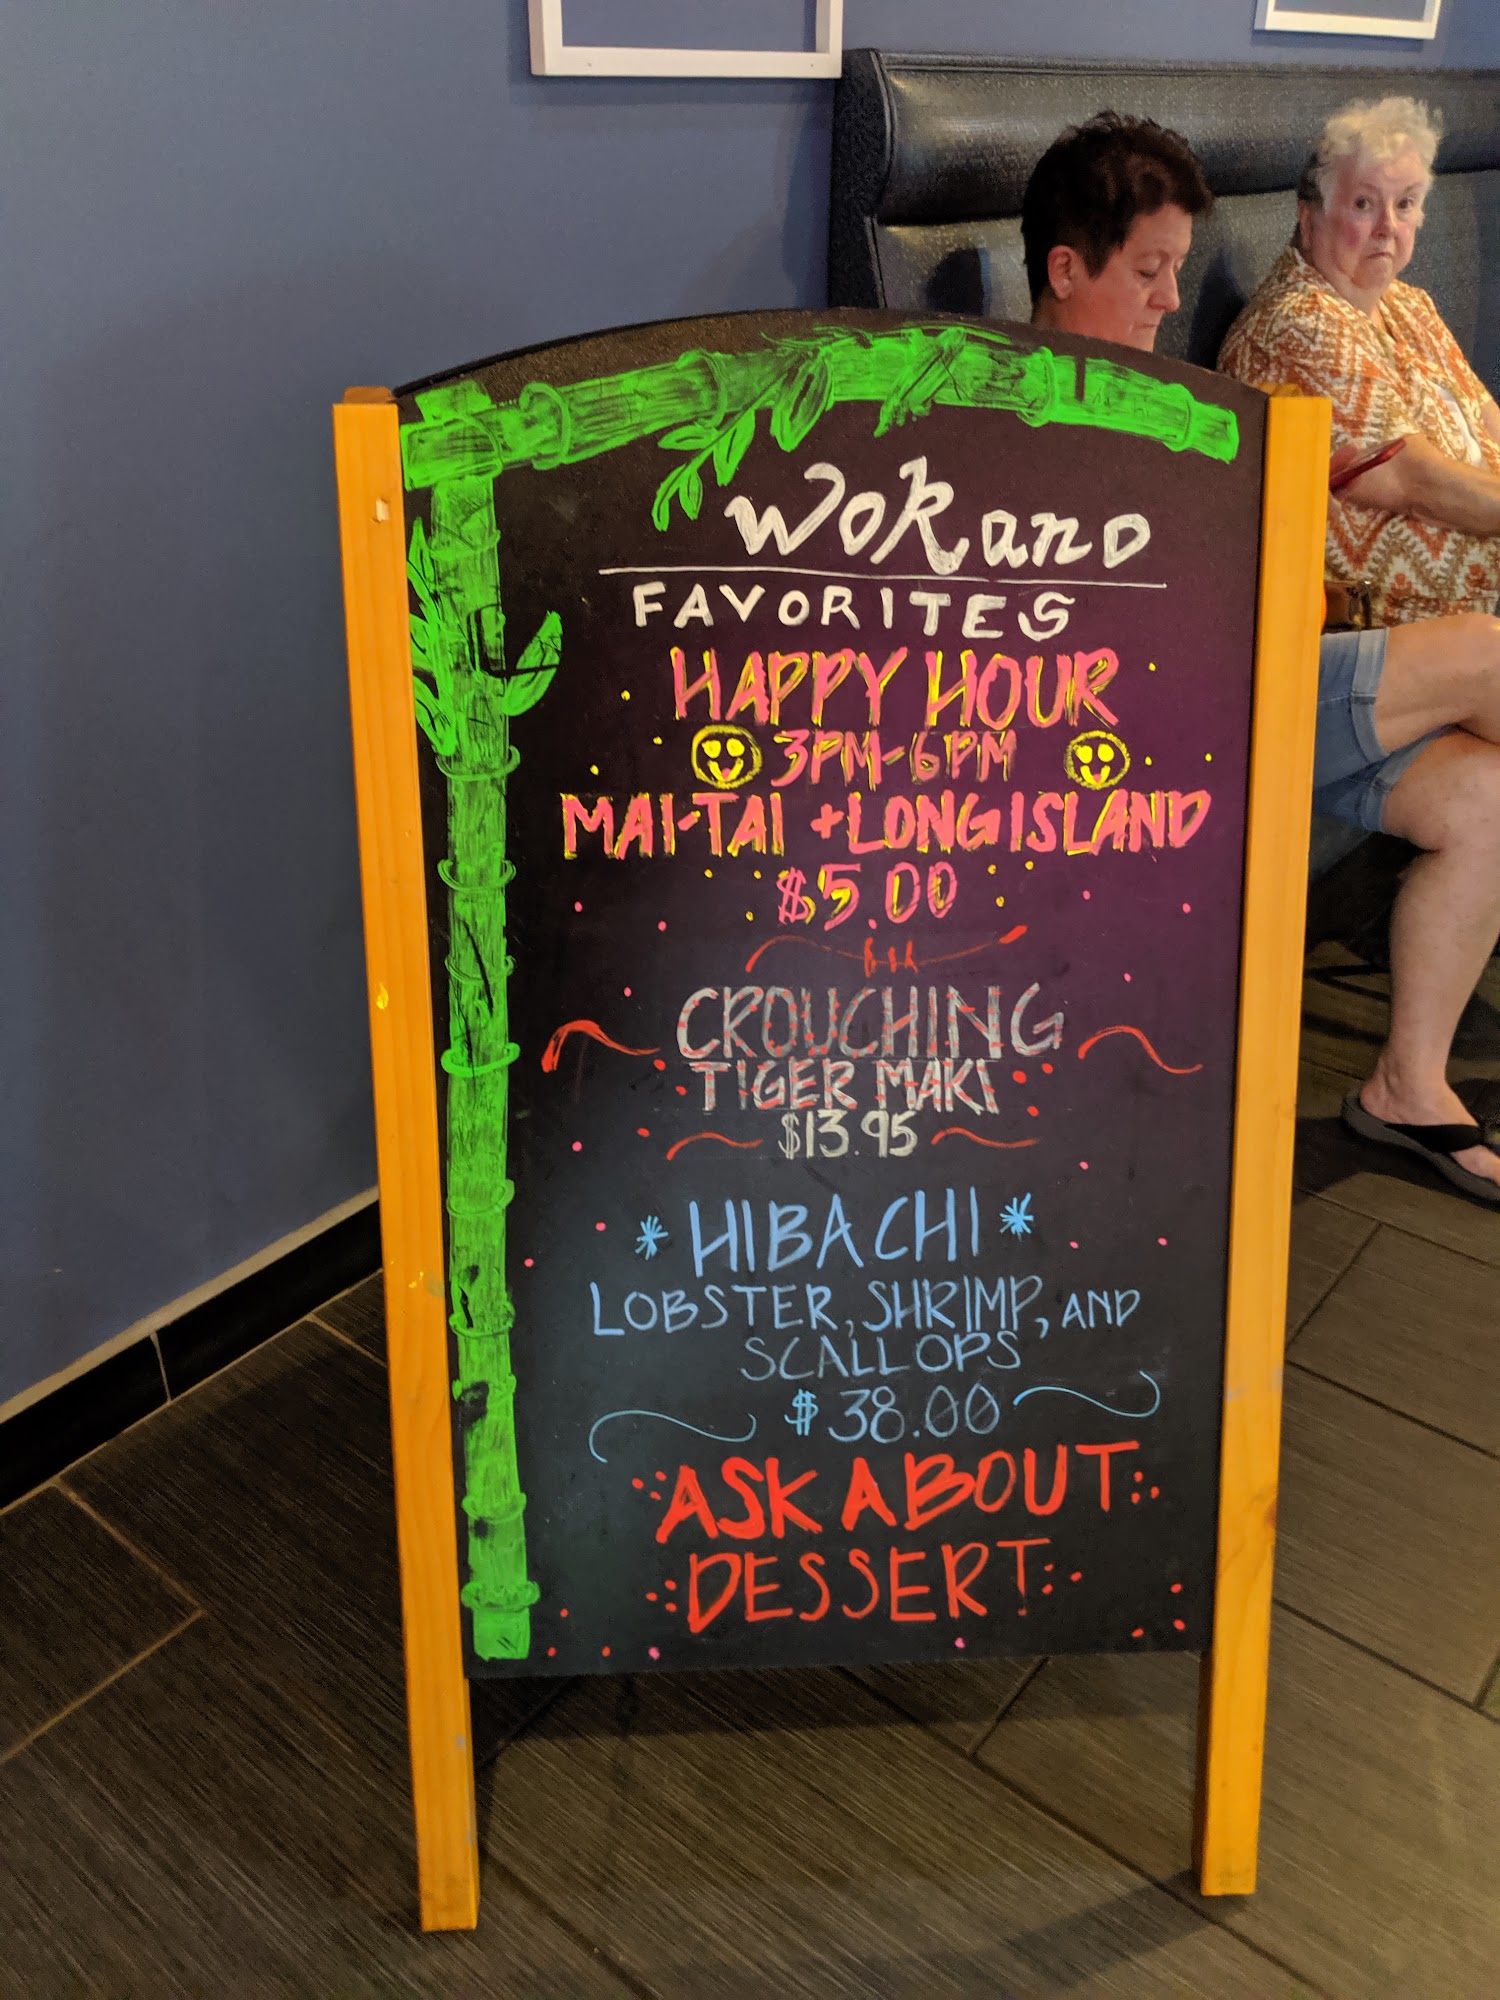 WOKano
FAVORITES
HAPPY HOUR
3PM-6PM
MAI-TAI + LONG ISLAND
$5.00
CROUCHING
TIGER MAKI
$13.95
* HIBACHI *
LOBSTER, SHRIMP, AND
SCALLOPS
$38.00
ASK ABOUT
DESSERT